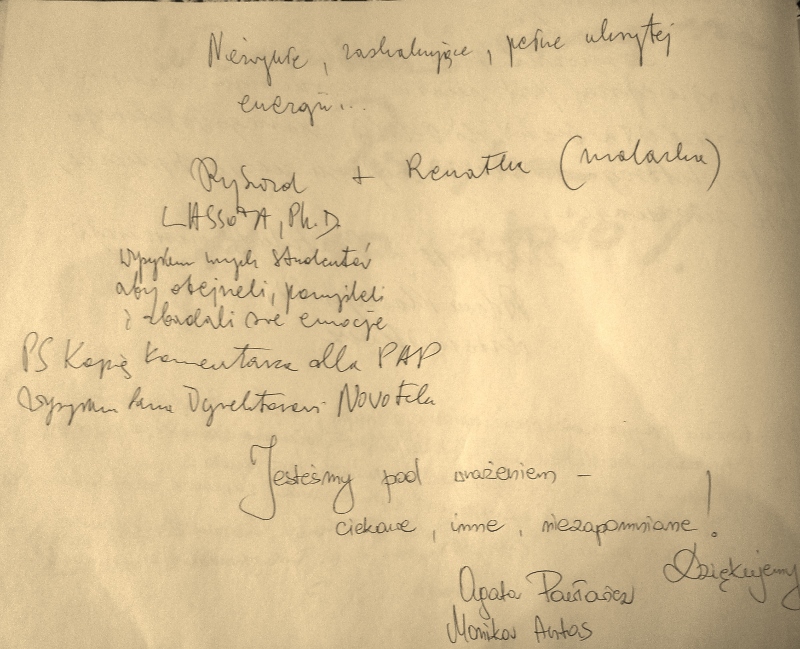 Niezwykłe, zaskakujące, pełne ukrytej
energii...
Ryszard + Renatka (malarka)
LASSOTA, Ph.D.
wysyłam mych studentów
aby obejrzeli, pomyśleli
i zbadali swe emocje
PS Kopię komentarza dla PAP
wysyłam Panu Dyrektorowi Novotelu
Jesteśmy pod wrażeniem -
ciekawe, inne, niezapomniane!
Dziękujemy
Agata
Monika Antas